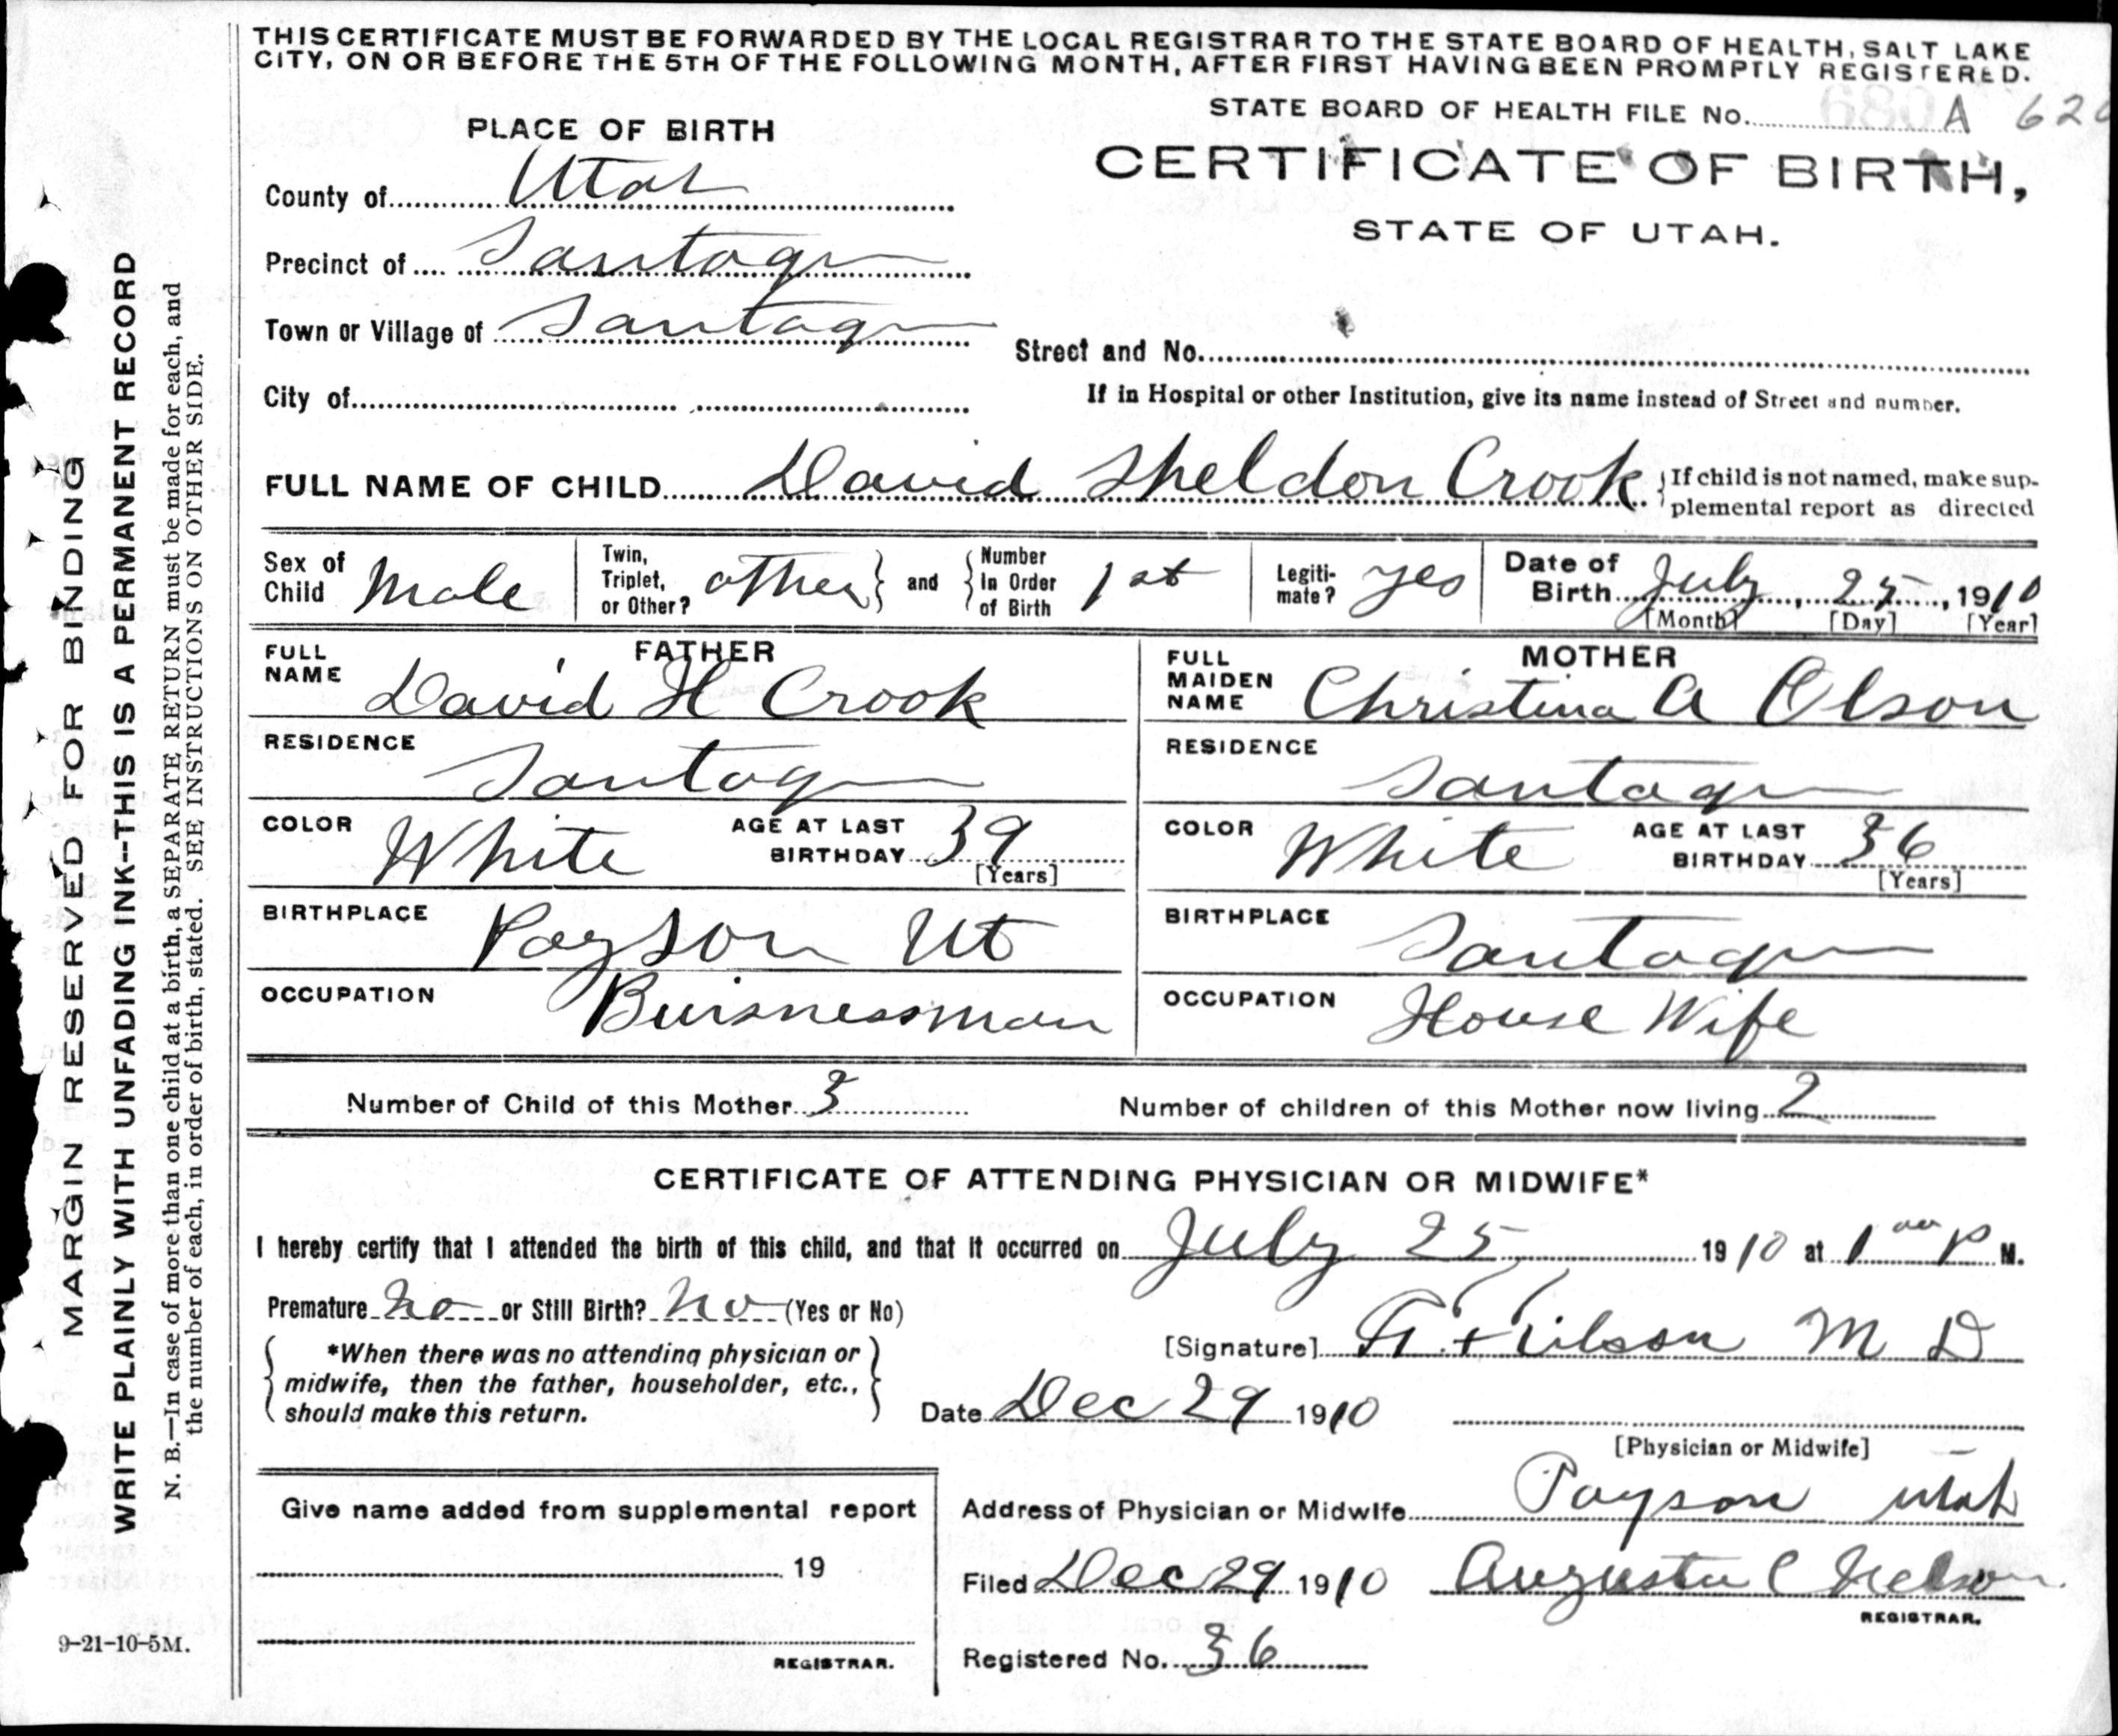 THIS CERTIFICATE MUST BE FORWARDED BY THE LOCAL REGISTRAR TO THE STATE BOARD OF HEALTH, SALT LAKE
CITY, ON OR BEFORE THE 5TH OF THE FOLLOWING MONTH, AFTER FIRST HAVING BEEN PROMPTLY REGISTERED.
STATE BOARD OF HEALTH FILE No. A 620
PLACE OF BIRTH
CERTIFICATE OF BIRTH,
STATE OF UTAH.
County of Utah
Precinct of Santaqu
Town or Village of Santaqu
Street and No.
City of
If in Hospital or other Institution, give its name instead of Street and number.
FULL NAME OF CHILD David Sheldon Crook
If child is not named, make sup-
plemental report as directed
Sex of Child Male
Twin, Triplet, or Other? other and Number In Order of Birth 1st
Legiti-mate? yes
Date of Birth July, 25, 1910
[Month] [Day] [Year]
FATHER
FULL NAME David H Crook
RESIDENCE Santaqu
COLOR White AGE AT LAST BIRTHDAY 39
[Years]
BIRTHPLACE Payson Ut
OCCUPATION Buisnessman
MOTHER
FULL MAIDEN NAME Christina A Olson
RESIDENCE Santaqu
COLOR White AGE AT LAST BIRTHDAY 36
[Years]
BIRTHPLACE Santaqu
OCCUPATION House Wife
Number of Child of this Mother 3
Number of children of this Mother now living 2
CERTIFICATE OF ATTENDING PHYSICIAN OR MIDWIFE*
I hereby certify that I attended the birth of this child, and that it occurred on July 25 1910 at 1 00 P M.
Premature no or Still Birth? no (Yes or No)
*When there was no attending physician or
midwife, then the father, householder, etc.,
should make this return.
[Signature] M D
Date Dec 29 1910
[Physician or Midwife]
Give name added from supplemental report
19
REGISTRAR.
Address of Physician or Midwife Payson Utah
Filed Dec 29 1910 Augusta C Nelson
REGISTRAR.
Registered No. 36
9-21-10-5M.
MARGIN RESERVED FOR BINDING
WRITE PLAINLY WITH UNFADING INK--THIS IS A PERMANENT RECORD
N. B.—In case of more than one child at a birth, a SEPARATE RETURN must be made for each, and
the number of each, in order of birth, stated. SEE INSTRUCTIONS ON OTHER SIDE.